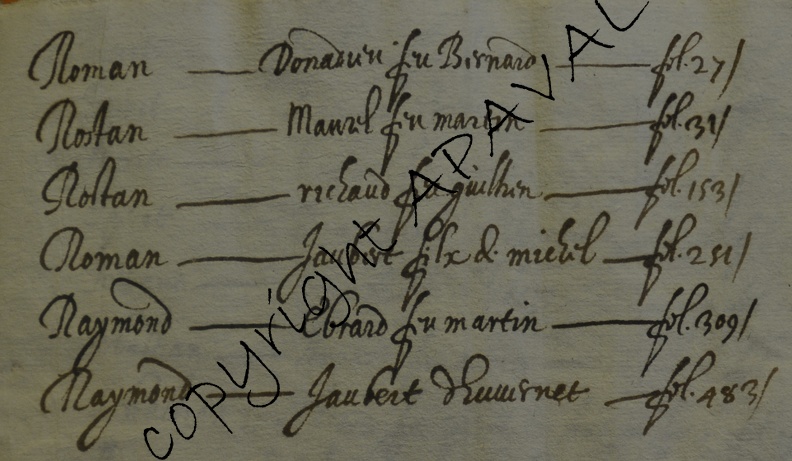 Roman — Donadieu feu Bernard — fol. 27/
Rostan — Maurel feu martin — fol. 31/
Rostan — richaud feu guilhen — fol. 153/
Roman — Jaubert filx de michel — fol. 251/
Raymond — Ebrard feu martin — fol. 309/
Raymond — Jaubert d'huvernet — fol. 483/
copyright APAVAL